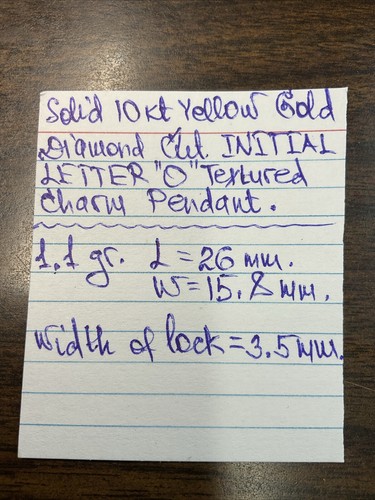 Solid 10kt Yellow Gold
Diamond Cut INITIAL
LETTER "O" Textured
Charm Pendant.
1.1 gr. L=26 mm.
W=15.8 mm.
width of lock=3.5mm.